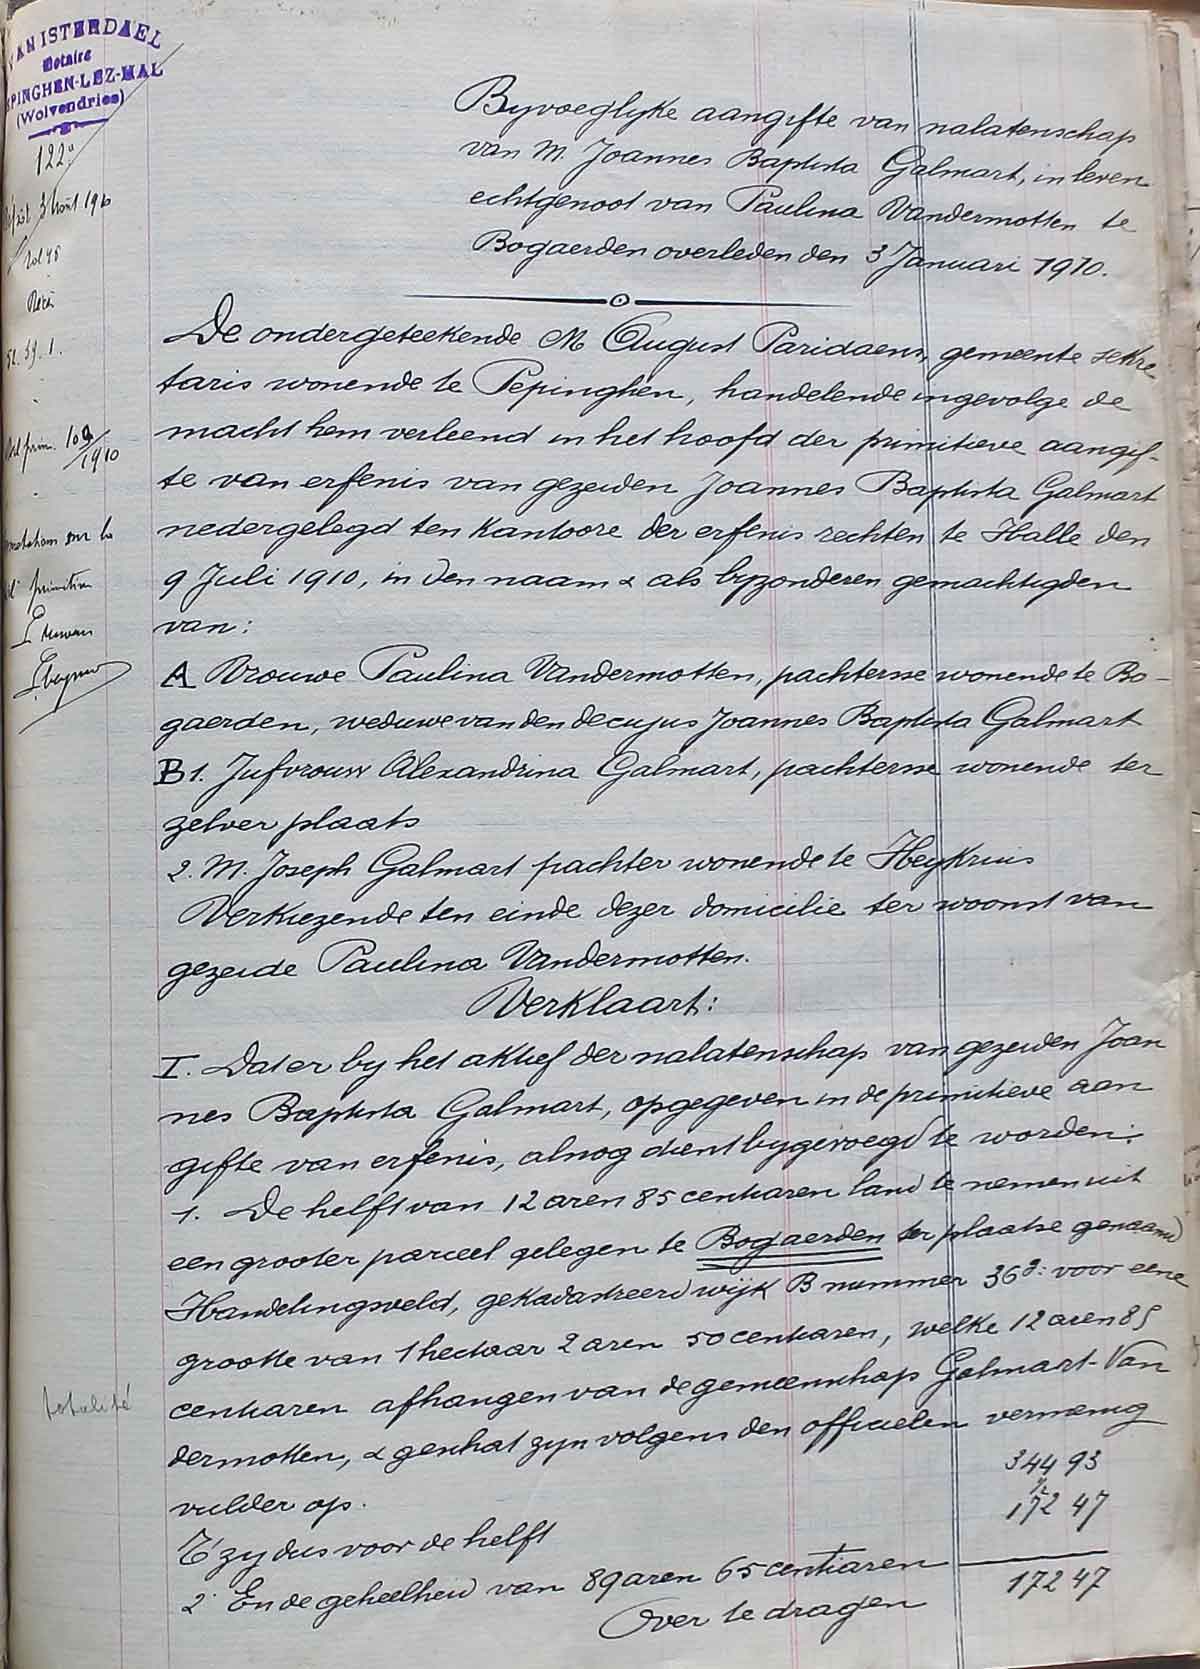 VANISTERDAEL
Notaire
PINGHEN-LEZ-HAL
(Wolvendries)
122
3 août 1910
109
1910
sur la
primitive
totalité
Byvoeglyke aangifte van nalatenschap
van M. Joannes Baptista Galmart, in leven
echtgenoot van Paulina Vandermotten te
Bogaerden overleden den 3 Januari 1910.
De ondergeteekende M August Paridaens, gemeente sekre
taris wonende te Pepinghen, handelende ingevolge de
macht hem verleend in het hoofd der primitieve aangif-
te van erfenis van gezeiden Joannes Baptista Galmart
nedergelegd ten kantoore der erfenis rechten te Halle den
9 Juli 1910, in den naam & als byzonderen gemachtigden
van:
A Vrouwe Paulina Vandermotten, pachtersse wonende te Bo-
gaerden, weduwe van den decujus Joannes Baptista Galmart
B 1. Jufvrouw Alexandrina Galmart, pachtersse wonende ter
zelver plaats
2. M. Joseph Galmart pachter wonende te Heykruis
Verkiezende ten einde dezer domicilie ter woonst van
gezeide Paulina Vandermotten.
Verklaart:
I. Dat er by het aktief der nalatenschap van gezeiden Joan
nes Baptista Galmart, opgegeven in de primitieve aan
gifte van erfenis, alnog dient bygevoegd te worden:
1. De helft van 12 aren 85 centiaren land te nemen uit
een grooter parceel gelegen te Bogaerden ter plaatse genaamd
Handelingsveld, gekadastreerd wijk B nummer 36g: voor eene
grootte van 1 hectaar 2 aren 50 centiaren, welke 12 aren 85
centiaren afhangen van de gemeenschap Galmart-Van
dermotten, & geschat zyn volgens den officielen vermenig
vulder op. 344 93
1/2
T'zy dus voor de helft 172 47
2. En de geheelheid van 89 aren 65 centiaren
Over te dragen 172 47